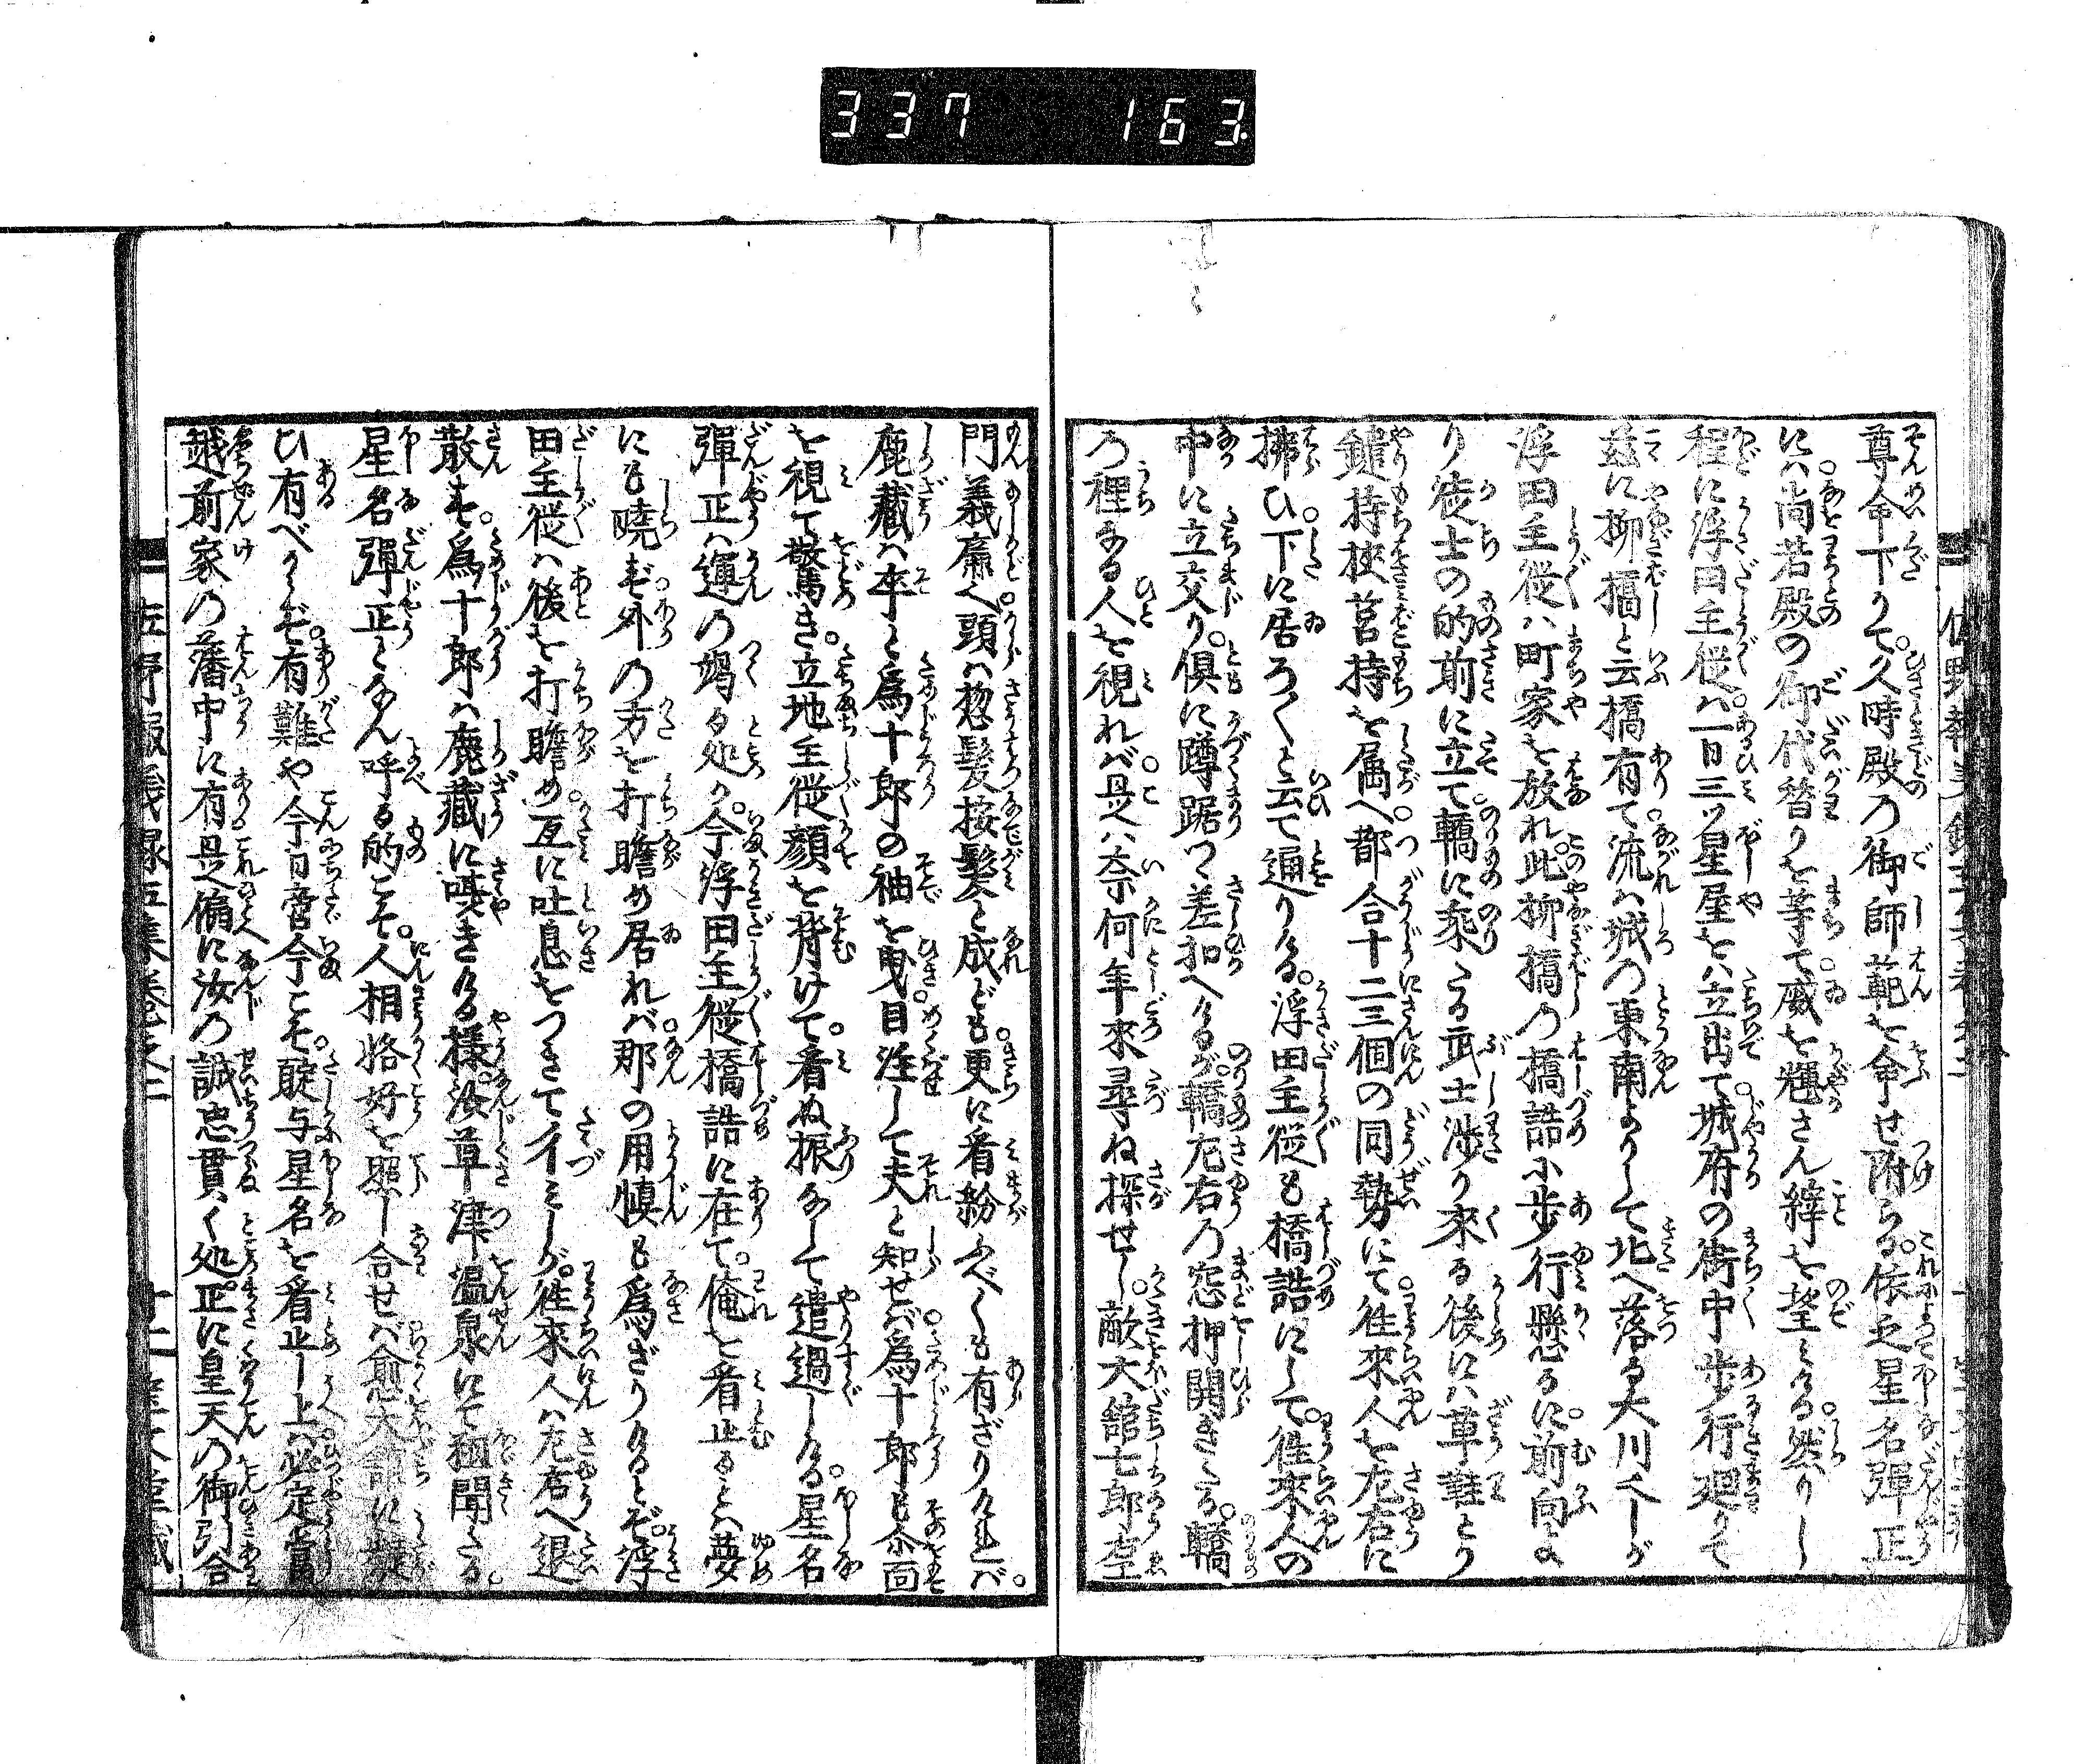 337 163
尊命下りて。久時殿の御師範を命せ附らる。依之星名彈正
には尚若殿の御代替りを等て威を輝さん縡を望みける。然りし
程に浮田主従は。一日三ツ星屋をば立出て。城府の街中歩行廻りて
茲に柳橋と云橋有て。流は城の東南よりして北へ落る大川なりしが
浮田主従は町家を放れ。此柳橋の橋詰に歩行懸るに。前向よ
り徒士の的前に立て。轎に乘たる武士渉り來る後には草鞋とり
鑓持挾筥持を属へ。都合十二三個の同勢にて。徃來人を左右に
拂ひ。下に居ろ〱と云て通りける。浮田主従も橋詰にして。徃來人の
中に立交り。倶に蹲踞て差扣へけるが。轎左右の窓押開きたる。轎
の裡なる人を視れば。是は奈何年來尋ね探せし。敵大舘七郎左
門義廉〱頭は惣髮按髮と成ども。更に看紛ふべくも有ざりければ。
鹿藏は卒と爲十郎の袖を曳。目注して夫と知せば。爲十郎も尒面
を視て驚き。立地主従顔を背けて。看ぬ振なして遣過しける。星名
彈正は運の竭る処か。今浮田主従橋詰に在て。俺を看止るとは夢
にも曉ず。外の方を打瞻め居れば。那の用愼も爲ざりけるとぞ。浮
田主従は後を打瞻め。互に吐息をつきて彳みしが。徃來人は左右へ退
散す。爲十郎は鹿藏に囁きける樣。汝草津温泉にて猶聞たる。
星名彈正となん呼る的こそ。人相恰好を照し合せば。愈大舘に疑
ひ有べからず。有難や今日啻今こそ。聢与星名を看止し上は。必定當
越前家の藩中に有。是偏に汝の誠忠貫く処。正に皇天の御引合